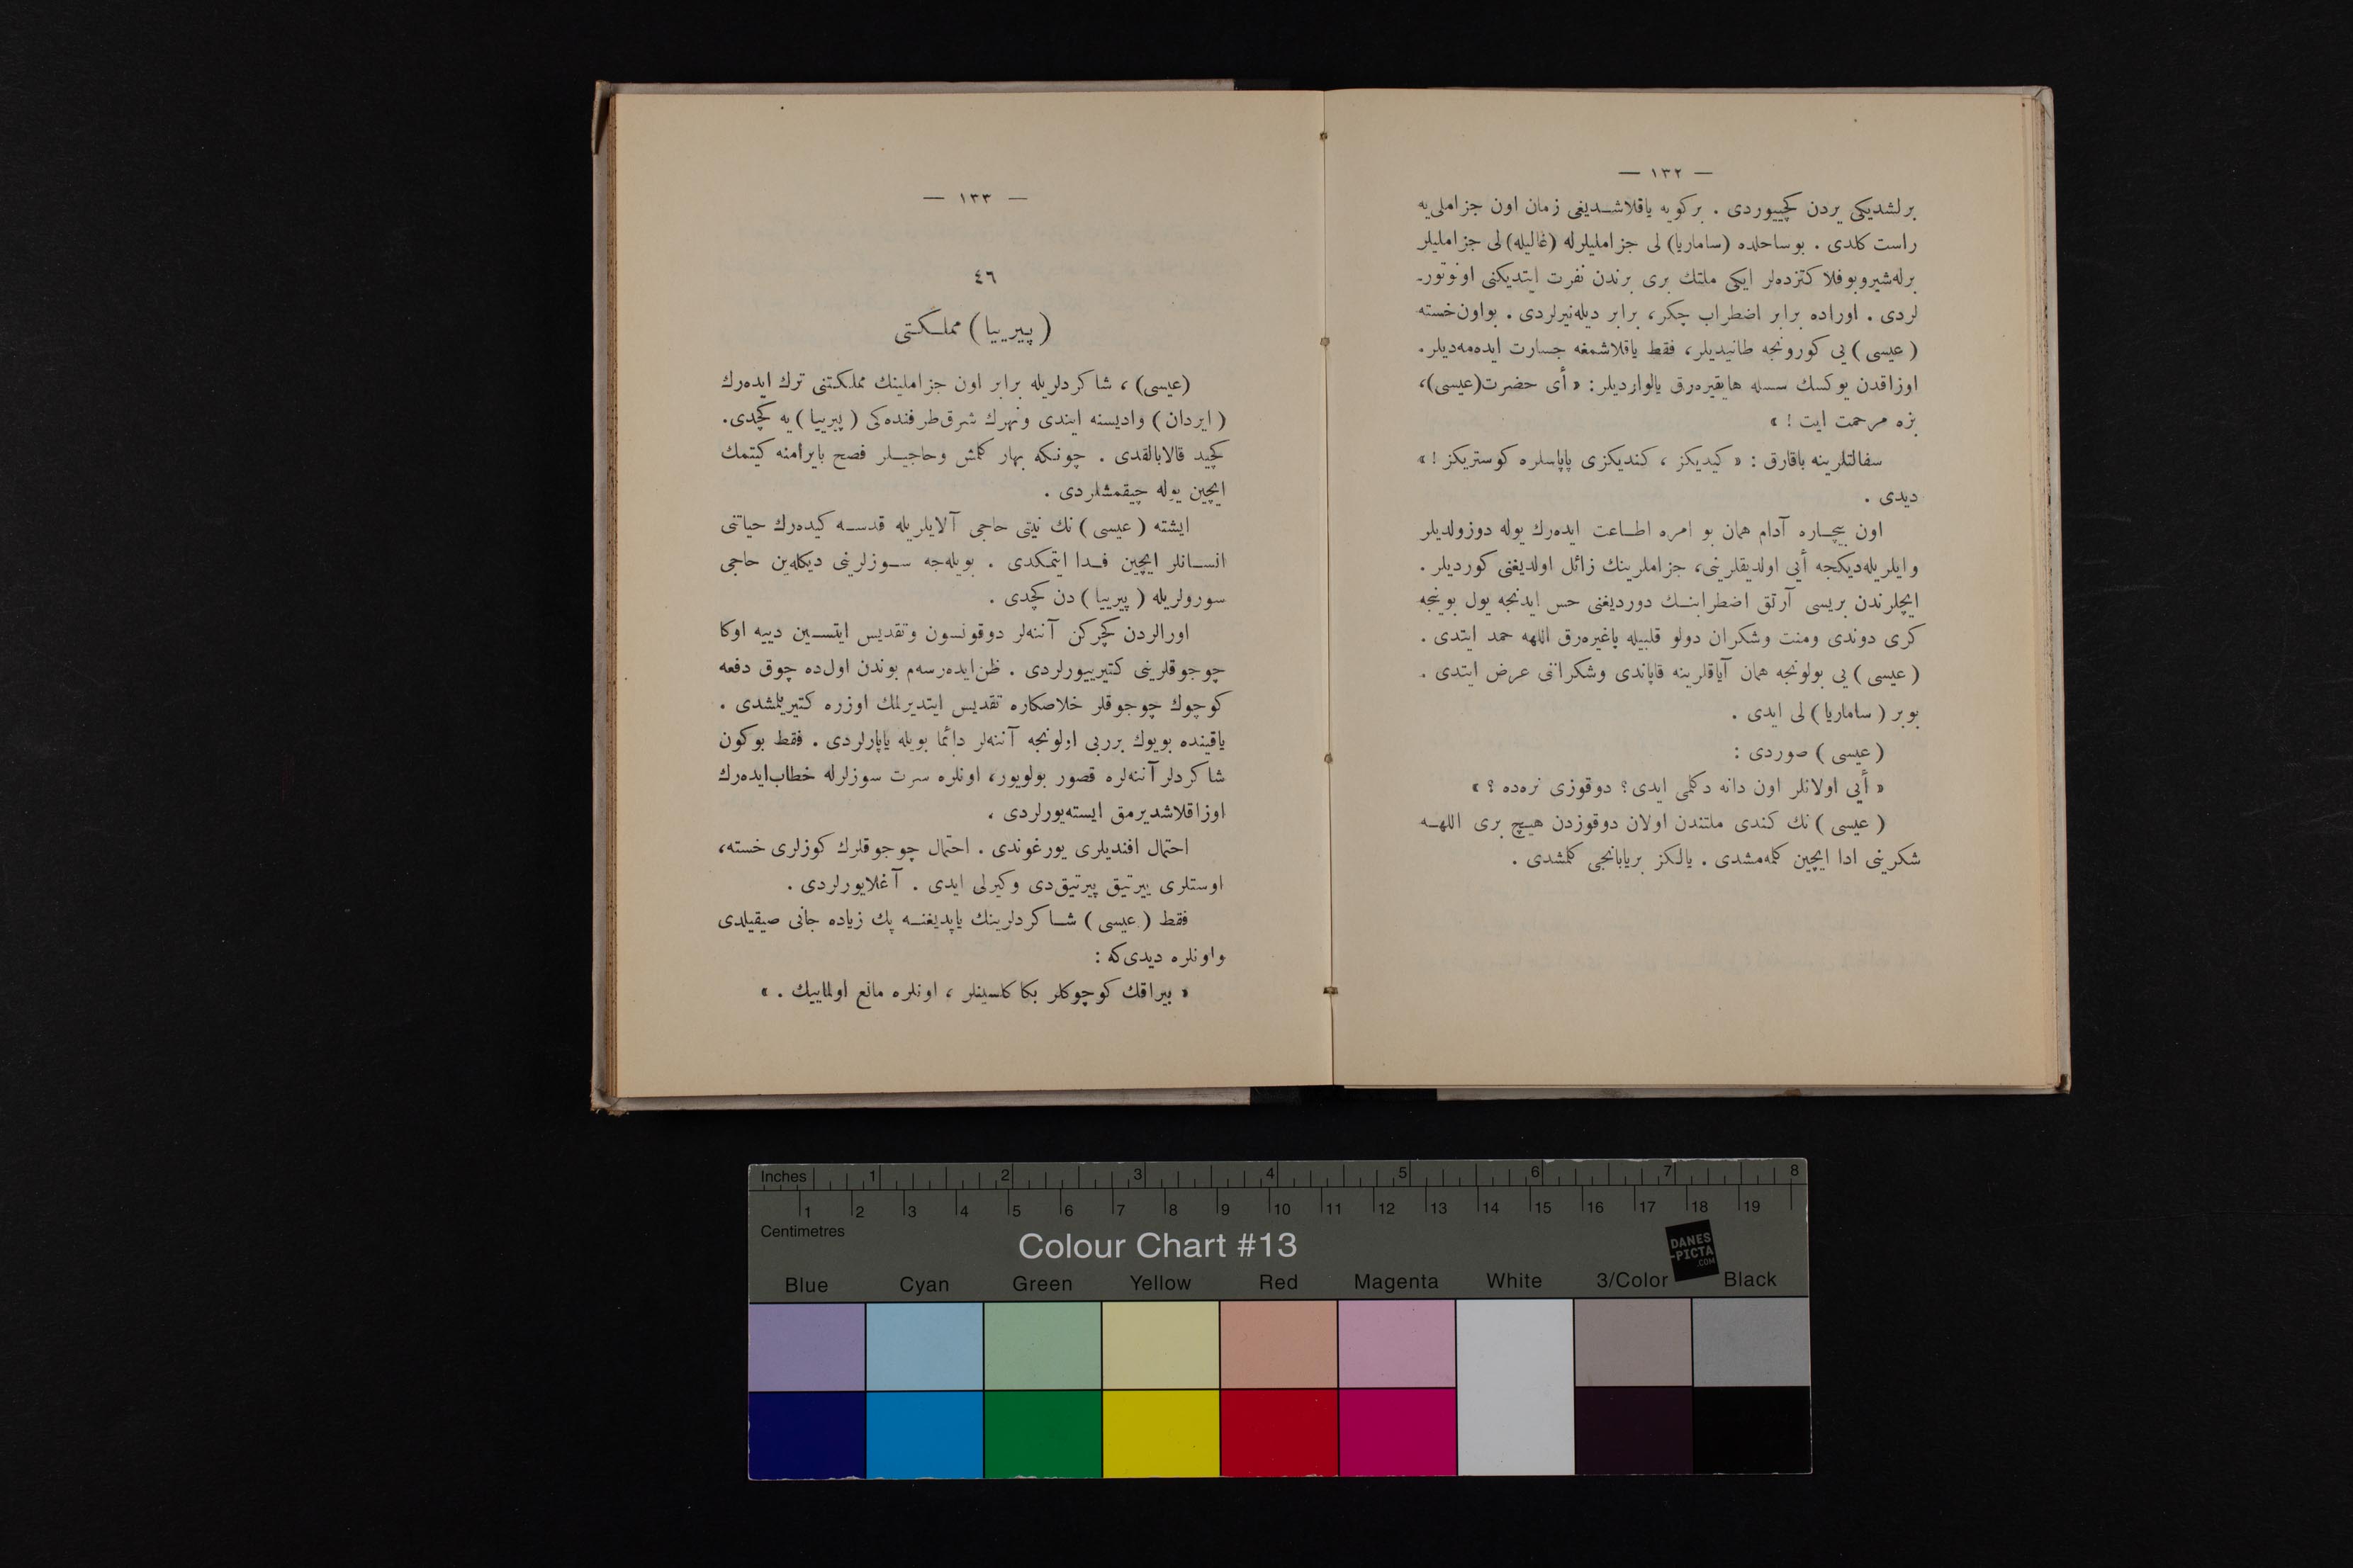 — ١٣٢ —
برلشديكى يردن كچييوردى . بركويه ياقلاشديغى زمان اون جزاملى‌يه
راست كلدى . بوساحلده (ساماريا) لى جزامليلرله (غاليله) لى جزامليلر
برله‌شيروبوفلاكتزده‌لر ايكى ملتك برى برندن نفرت ايتديكنى اونوتور-
لردى . اوراده برابر اضطراب چكر، برابر ديله‌نيرلردى . بواون‌خسته
(عيسى) يى كورونجه طانيديلر، فقط ياقلاشمغه جسارت ايده‌مه‌ديلر .
اوزاقدن يوكسك سسله هايقيره‌رق يالوارديلر : « أى حضرت(عيسى)،
بزه مرحمت ايت ! »
سفالتلرينه باقارق : « كيديكز ، كنديكزى پاپاسلره كوستريكز ! »
ديدى .
اون بيچاره آدام همان بو امره اطاعت ايده‌رك يوله دوزولديلر
وايلريله‌ديكجه أيى اولديقلرينى، جزاملرينك زائل اولديغنى كورديلر .
ايچلرندن بريسى آرتق اضطرابنك دورديغنى حس ايدنجه يول بوينجه
كرى دوندى ومنت وشكران دولو قلبيله پاغيره‌رق اللهه حمد ايتدى .
(عيسى) يى بولونجه همان آياقلرينه قاپاندى وشكراننى عرض ايتدى .
بوبر (ساماريا) لى ايدى .
(عيسى) صوردى :
« أيى اولانلر اون دانه دكلمى ايدى؟ دوقوزى نره‌ده ؟ »
(عيسى) نك كندى ملتندن اولان دوقوزدن هيچ برى اللهه
شكرينى ادا ايچين كله‌مشدى . يالكز بريابانجى كلمشدى .
— ١٣٣ —
٤٦
(پيرييا) مملكتى
(عيسى) ، شاكردلريله برابر اون جزاملينك مملكتنى ترك ايده‌رك
(ايردان) واديسنه ايندى ونهرك شرق‌طرفنده‌كى (پيرييا) يه كچدى.
كچيد قالابالقدى . چونكه بهار كلمش وحاجيلر فصح بايرامنه كيتمك
ايچين يوله چيقمشلردى .
ايشته (عيسى) نك نيتى حاجى آلايلريله قدسه كيده‌رك حياتنى
انسانلر ايچين فدا ايتمكدى . بويله‌جه سوزلرينى ديكله‌ين حاجى
سورولريله (پيرييا) دن كچدى .
اورالردن كچركن آننه‌لر دوقونسون وتقديس ايتسين دييه اوكا
چوجوقلرينى كتيرييورلردى . ظن‌ايده‌رسه‌م بوندن اول‌ده چوق دفعه
كوچوك چوجوقلر خلاصكاره تقديس ايتديرلمك اوزره كتيريلمشدى .
ياقينده بويوك برربى اولونجه آننه‌لر دائما بويله ياپارلردى . فقط بوكون
شاكردلر آننه‌لره قصور بولويور، اونلره سرت سوزلرله خطاب‌ايده‌رك
اوزاقلاشديرمق ايسته‌يورلردى ،
احتمال افنديلرى يورغوندى . احتمال چوجوقلرك كوزلرى خسته،
اوستلرى ييرتيق پيرتيق‌دى وكيرلى ايدى . آغلايورلردى .
فقط (عيسى) شاكردلرينك ياپديغنه پك زياده جانى صيقيلدى
واونلره ديدى‌كه :
« بيراقك كوچوكلر بكا كلسينلر ، اونلره مانع اولماييك . »
Inches 1 2 3 4 5 6 7 8
1 2 3 4 5 6 7 8 9 10 11 12 13 14 15 16 17 18 19
Centimetres
Colour Chart #13
DANES
-PICTA
.COM
Blue Cyan Green Yellow Red Magenta White 3/Color Black